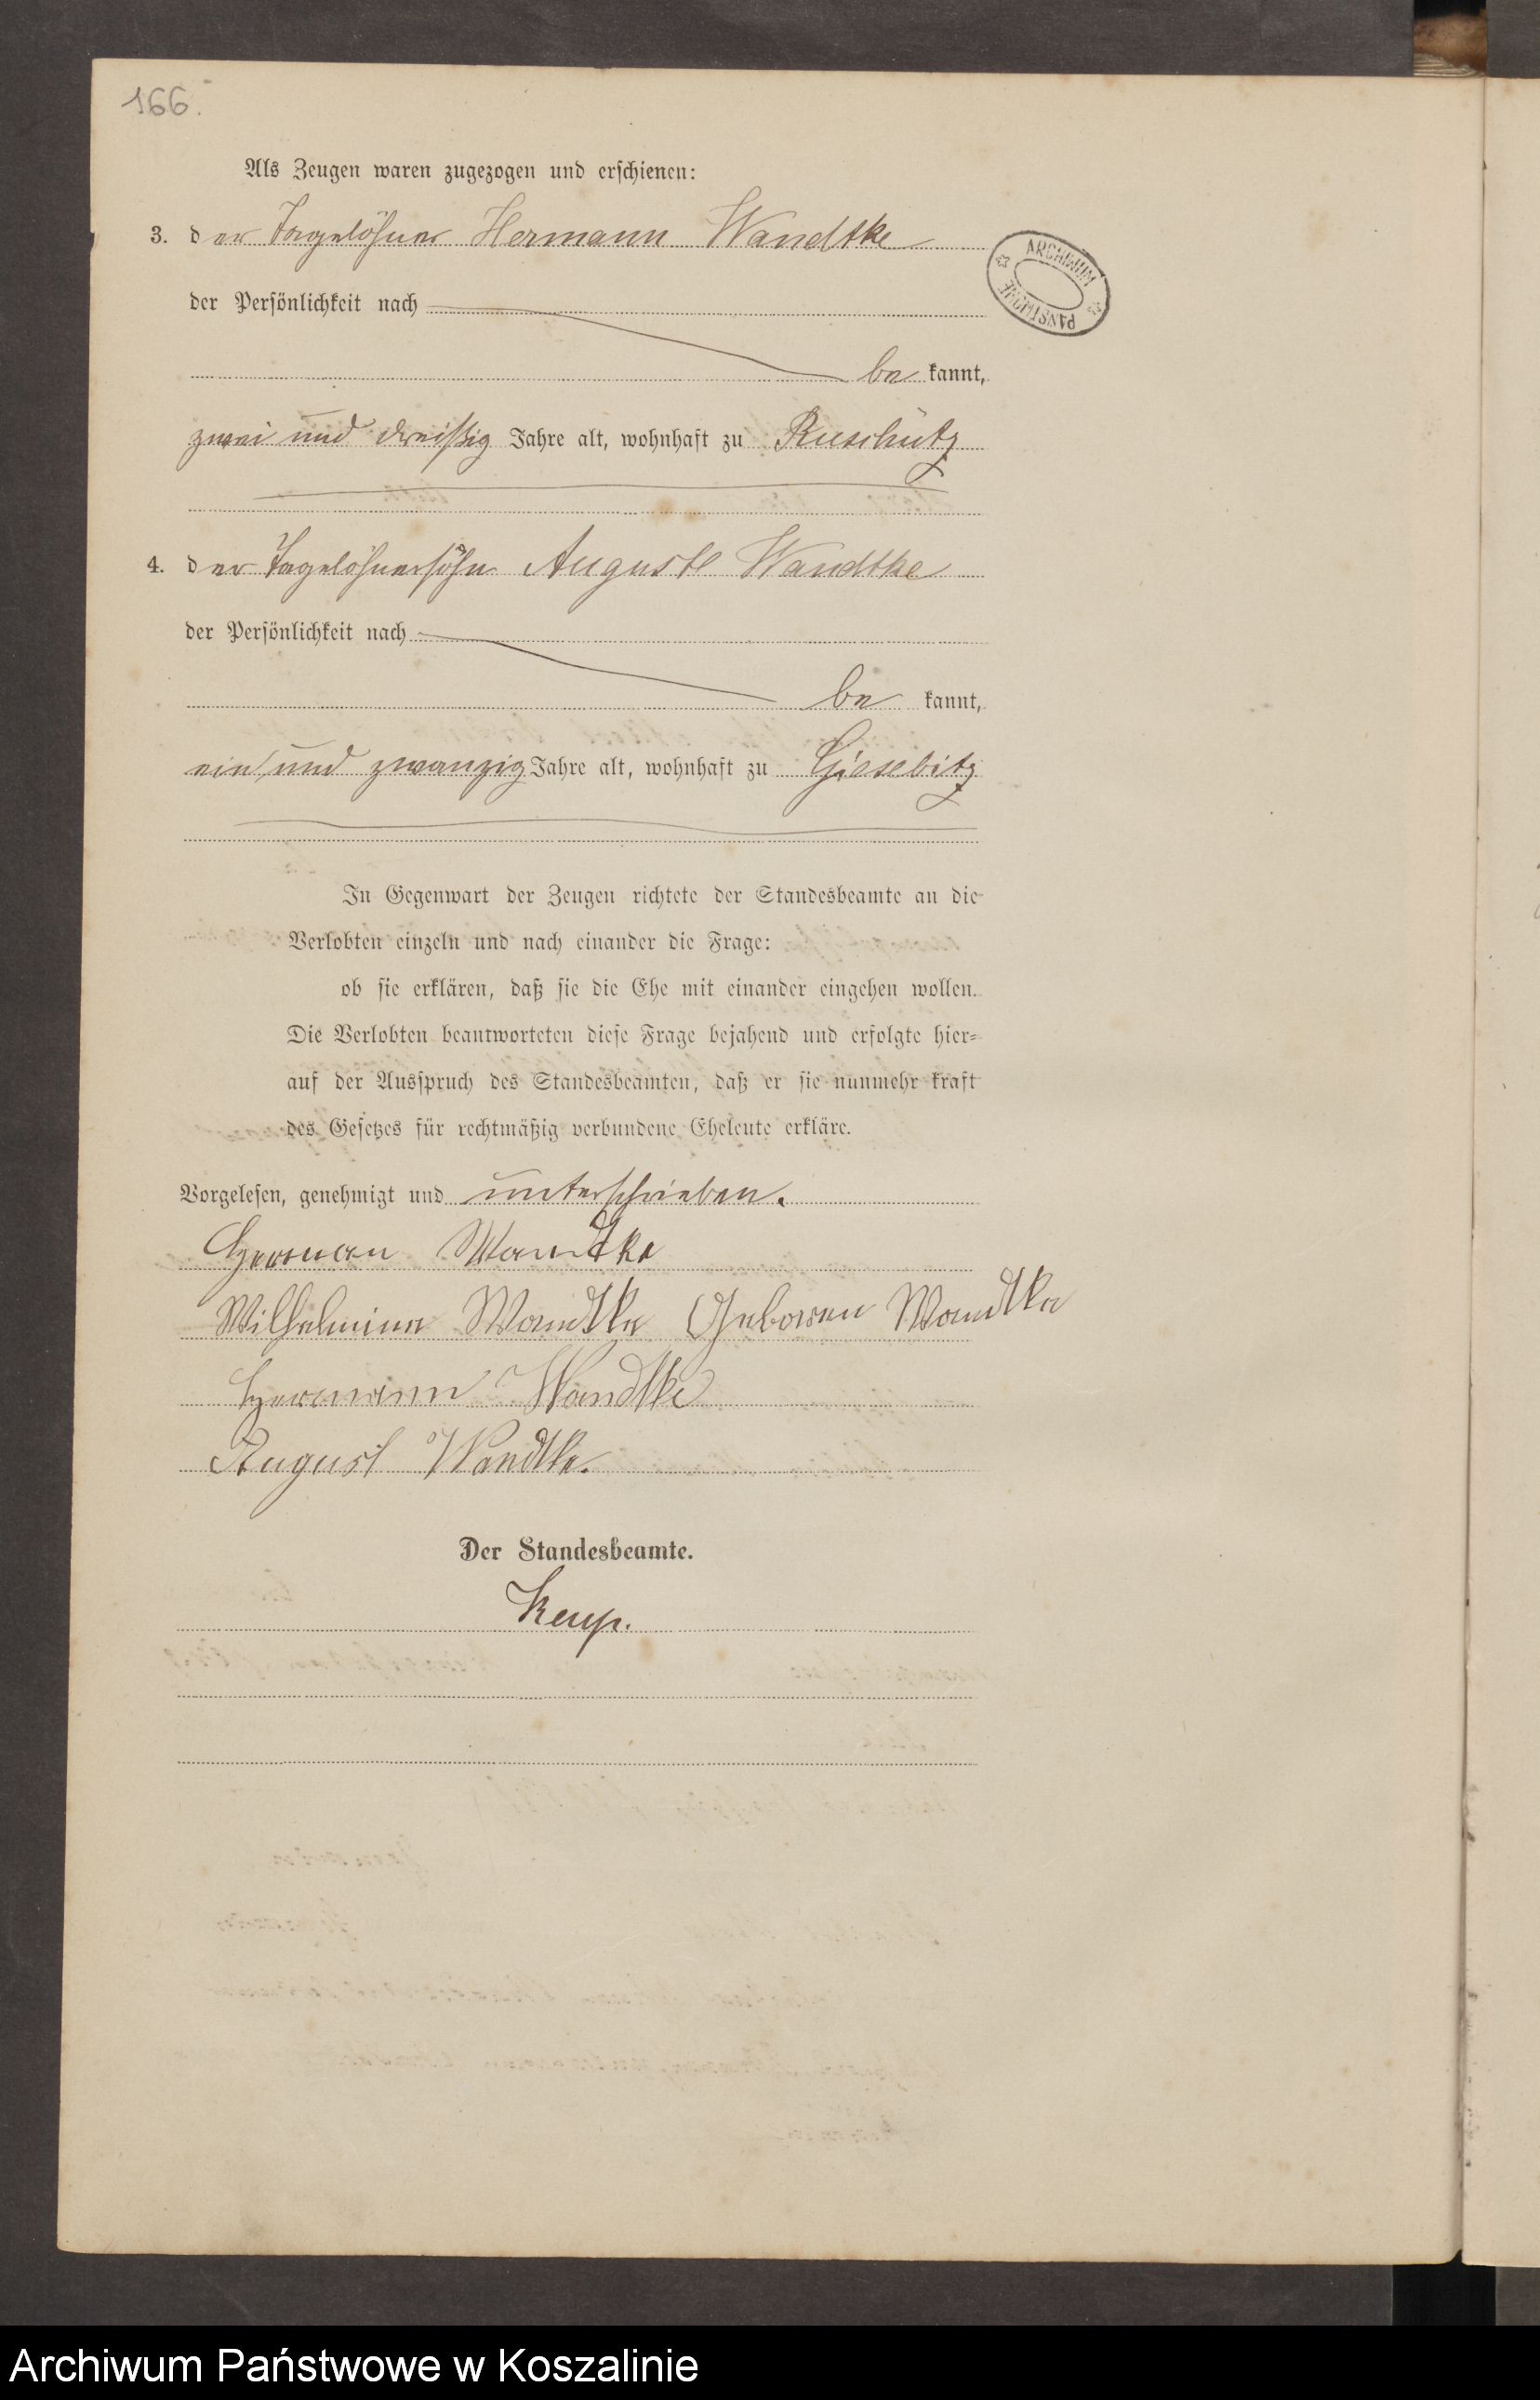 166.
Als Zeugen waren zugezogen und erschienen:
3. der Tagelöhner Hermann Wandtke
ARCHIWUM PAŃSTWOWE
der Persönlichkeit nach
be kannt,
zwei und dreißig Jahre alt, wohnhaft zu Ruschütz
4. der Tagelöhnersohn Auguste Wandtke
der Persönlichkeit nach
be kannt,
ein und zwanzig Jahre alt, wohnhaft zu Giesebitz
In Gegenwart der Zeugen richtete der Standesbeamte an die
Verlobten einzeln und nach einander die Frage:
ob sie erklären, daß sie die Ehe mit einander eingehen wollen.
Die Verlobten beantworteten diese Frage bejahend und erfolgte hier-
auf der Ausspruch des Standesbeamten, daß er sie nunmehr kraft
des Gesetzes für rechtmäßig verbundene Eheleute erkläre.
Vorgelesen, genehmigt und unterschrieben.
Herman Wandtke
Wilhelmine Wandtke Geboren Wandtke
Hermann Wandtke
August Wandtke.
Der Standesbeamte.
Archiwum Państwowe w Koszalinie